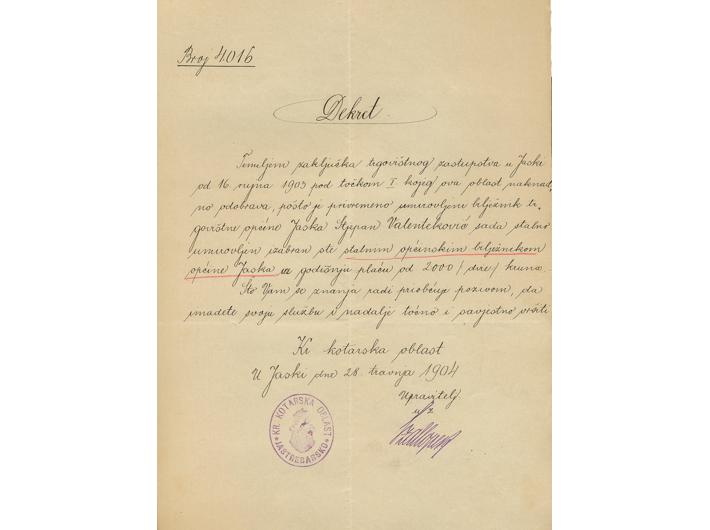 Broj 4016
Dekret
Temeljem zaključka trgovištnog zastupstva u Jaski
od 16. rujna 1903 pod točkom I kojeg ova oblast naknad,
no odobrava, pošto je privremeno umirovljeni bilježnik tr,
govištne općine Jaska Stjepan Valenteković sada stalno
umirovljen izabran ste stalnim općinskim bilježnikom
općine Jaska uz godišnju plaću od 2000 /dvie/ kruna.
Što Vam se znanja radi priobćuje pozivom, da
imadete svoju službu i nadalje točno i savjestno vršiti
Kr kotarska oblast
U Jaski dne 28. travnja 1904
Upravitelj
KR. KOTARSKA OBLAST
JASTREBARSKO